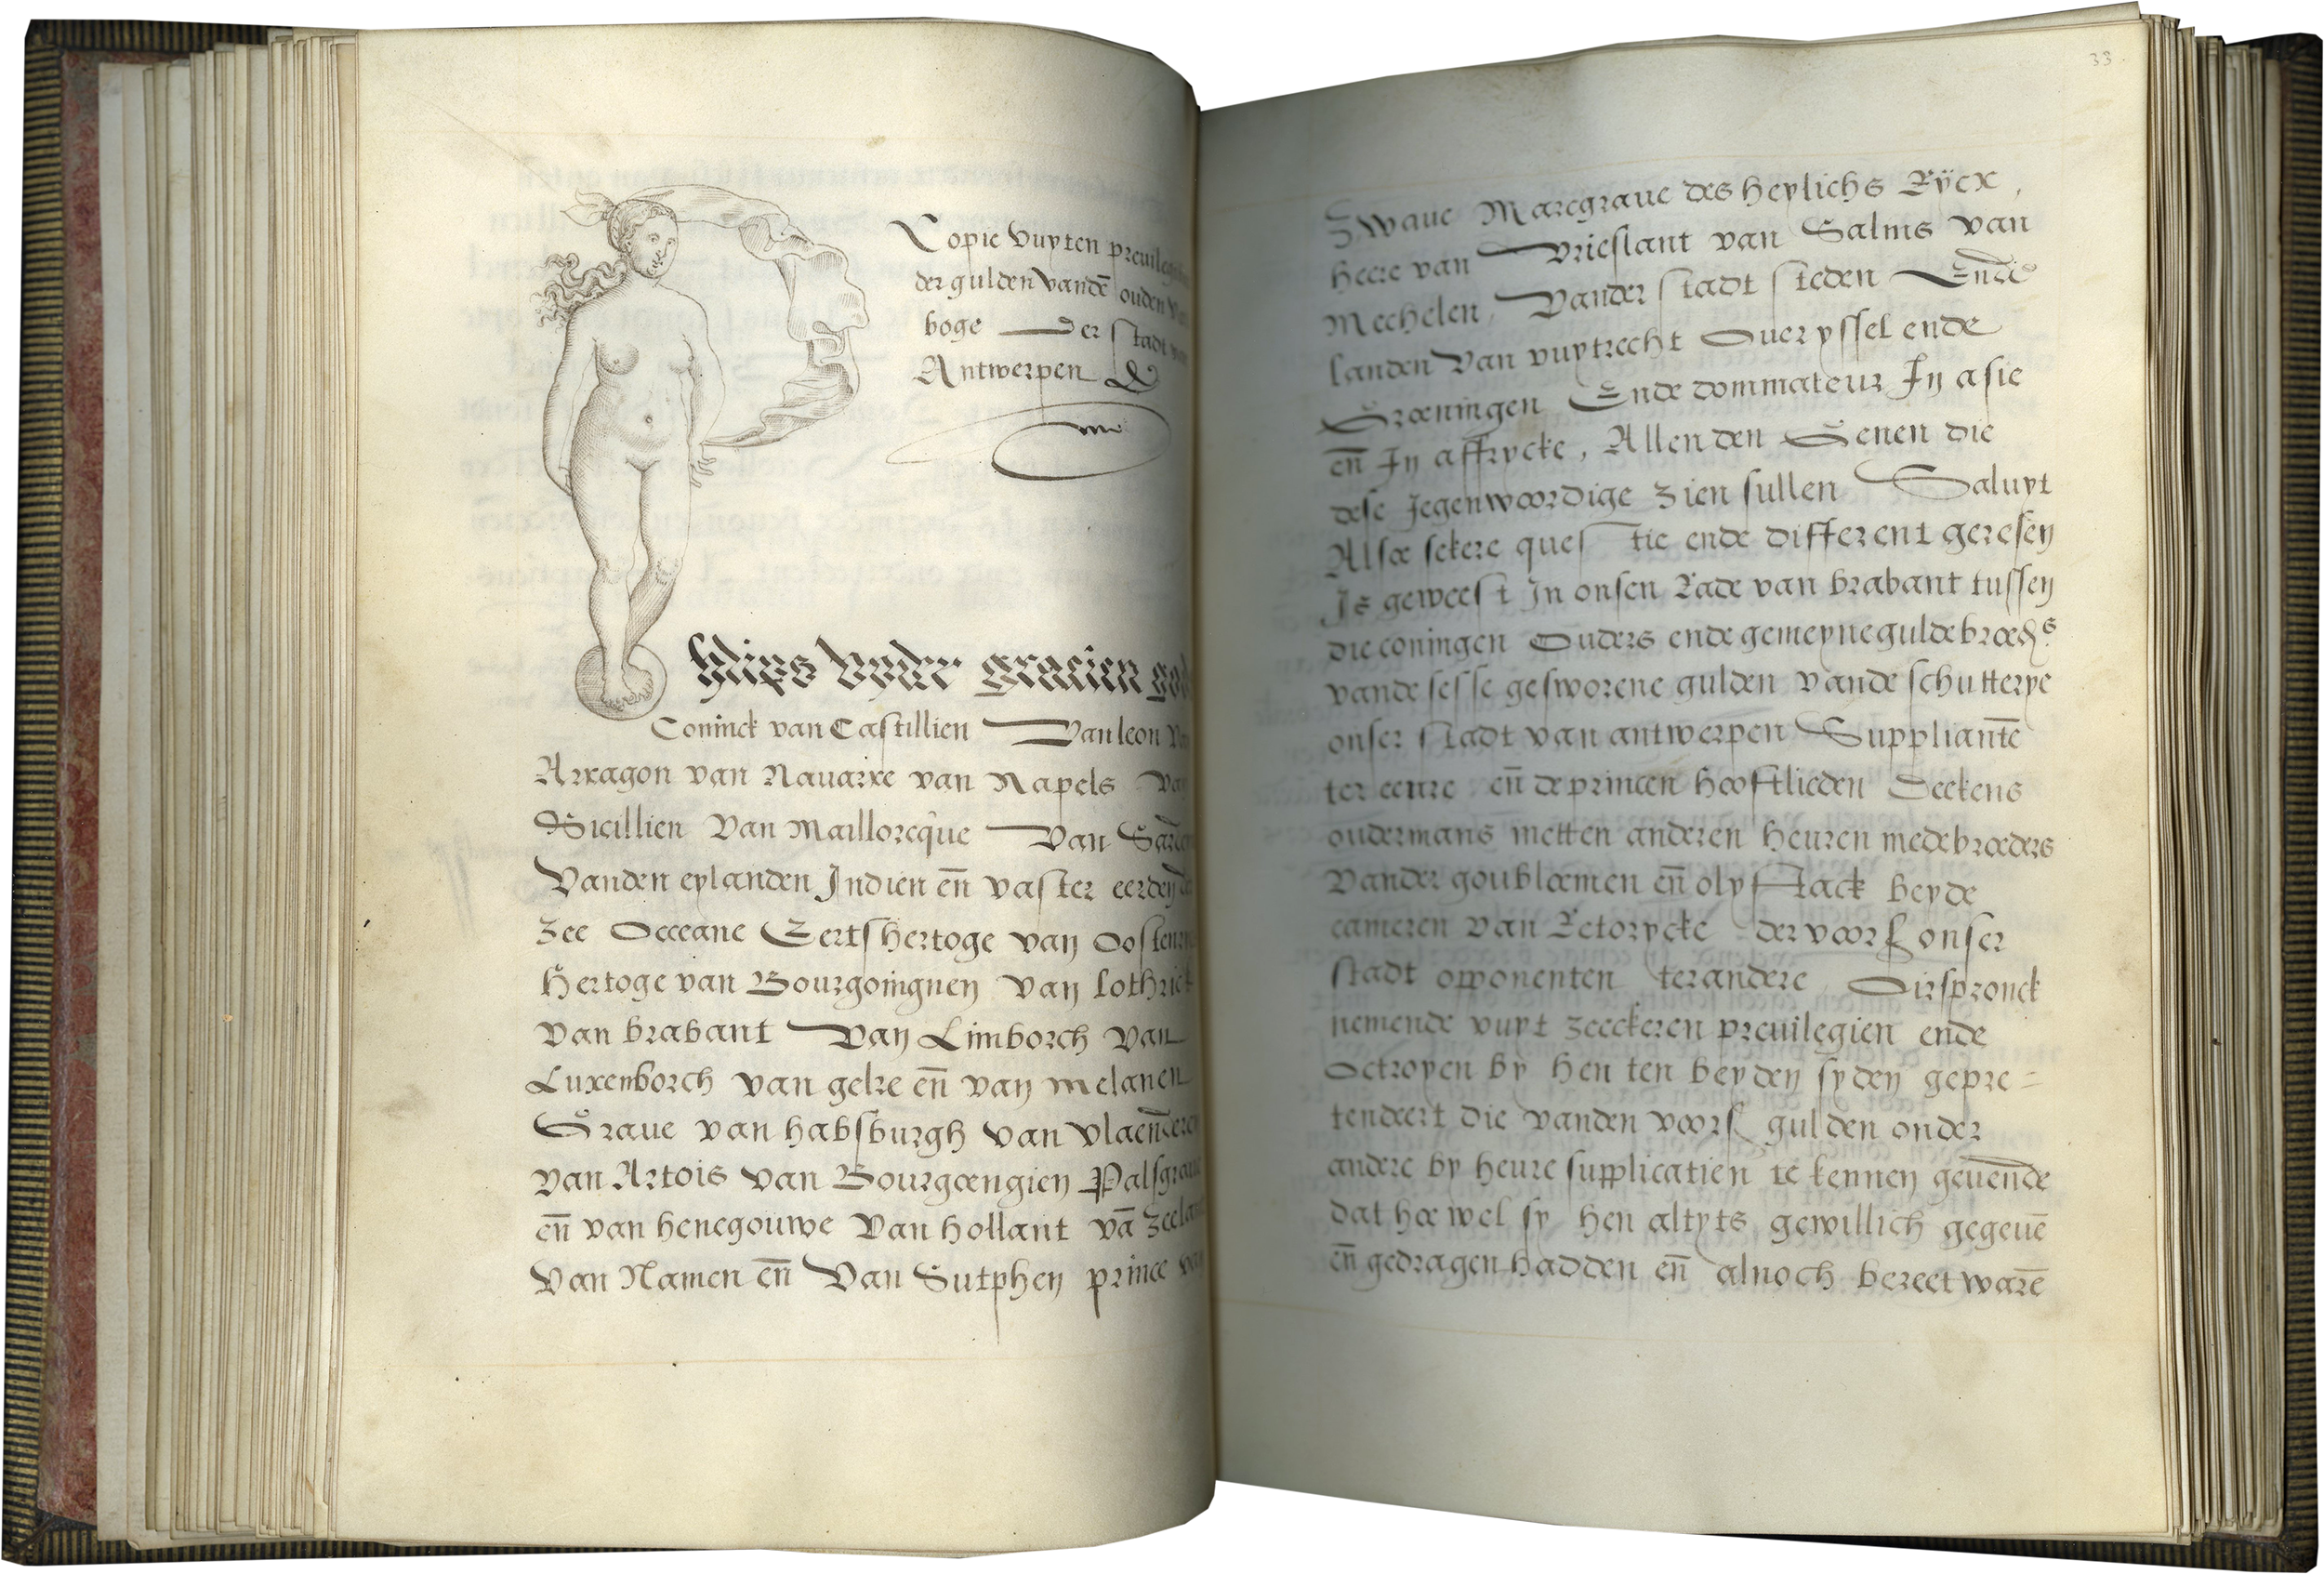 Copie vuyten preuileg
der gulden vandē ouden
boge der stadt
Antwerpen
hlips byder gracien god
Coninck van Castillien Van leon
Arragon van Nauarre van Napels va
Sicillien Van Maillorcque Van Sar
Vanden eylanden Indien en̄ vaster eerden
zee Occeane Eertshertoge van Oostenr
Hertoge van Bourgoingnen van lothrick
van brabant Van Limborch van
Luxenborch van gelre en̄ van melanen
Graue van habsburgh van vlaen̄deren
van Artois van Bourgoengien Palsgraue
en̄ van henegouwe van hollant vā zeelan
van Namen en̄ Van Sutphen prince van
33
Zwaue Marcgraue des heylichs Rycx,
heere van Vrieslant van Salms van
Mechelen, Vander stadt steden Ende
landen Van vuytrecht Oueryssel ende
Groeningen Ende dommateur In asie
en̄ In affrycke, Allen den Genen die
dese Jegenwoordige zien sullen Saluyt
Alsoe sekere questie ende different geresen
Is geweest In onsen Rade van brabant tussen
die coningen Ouders ende gemeyne guldebroeds
vande sesse gesworene gulden vande schutterye
onser stadt van antwerpen Suppliantē
ter eenre en̄ de princen hooftlieden Deekens
oudermans metten anderen heuren medebroeders
Vander goubloemen en̄ olyftack beyde
cameren van Retorycke der voors onser
stadt opponenten ter andere Oirspronck
nemende vuyt zeeckeren preuilegien ende
Octroyen by hen ten beyden syden gepre=
tendeert die vanden voors gulden onder
andere by heure supplicatien te kennen geuen̄de
dat hoe wel sy hen altyts gewillich gegeuē
en̄ gedragen hadden en̄ alnoch bereet warē